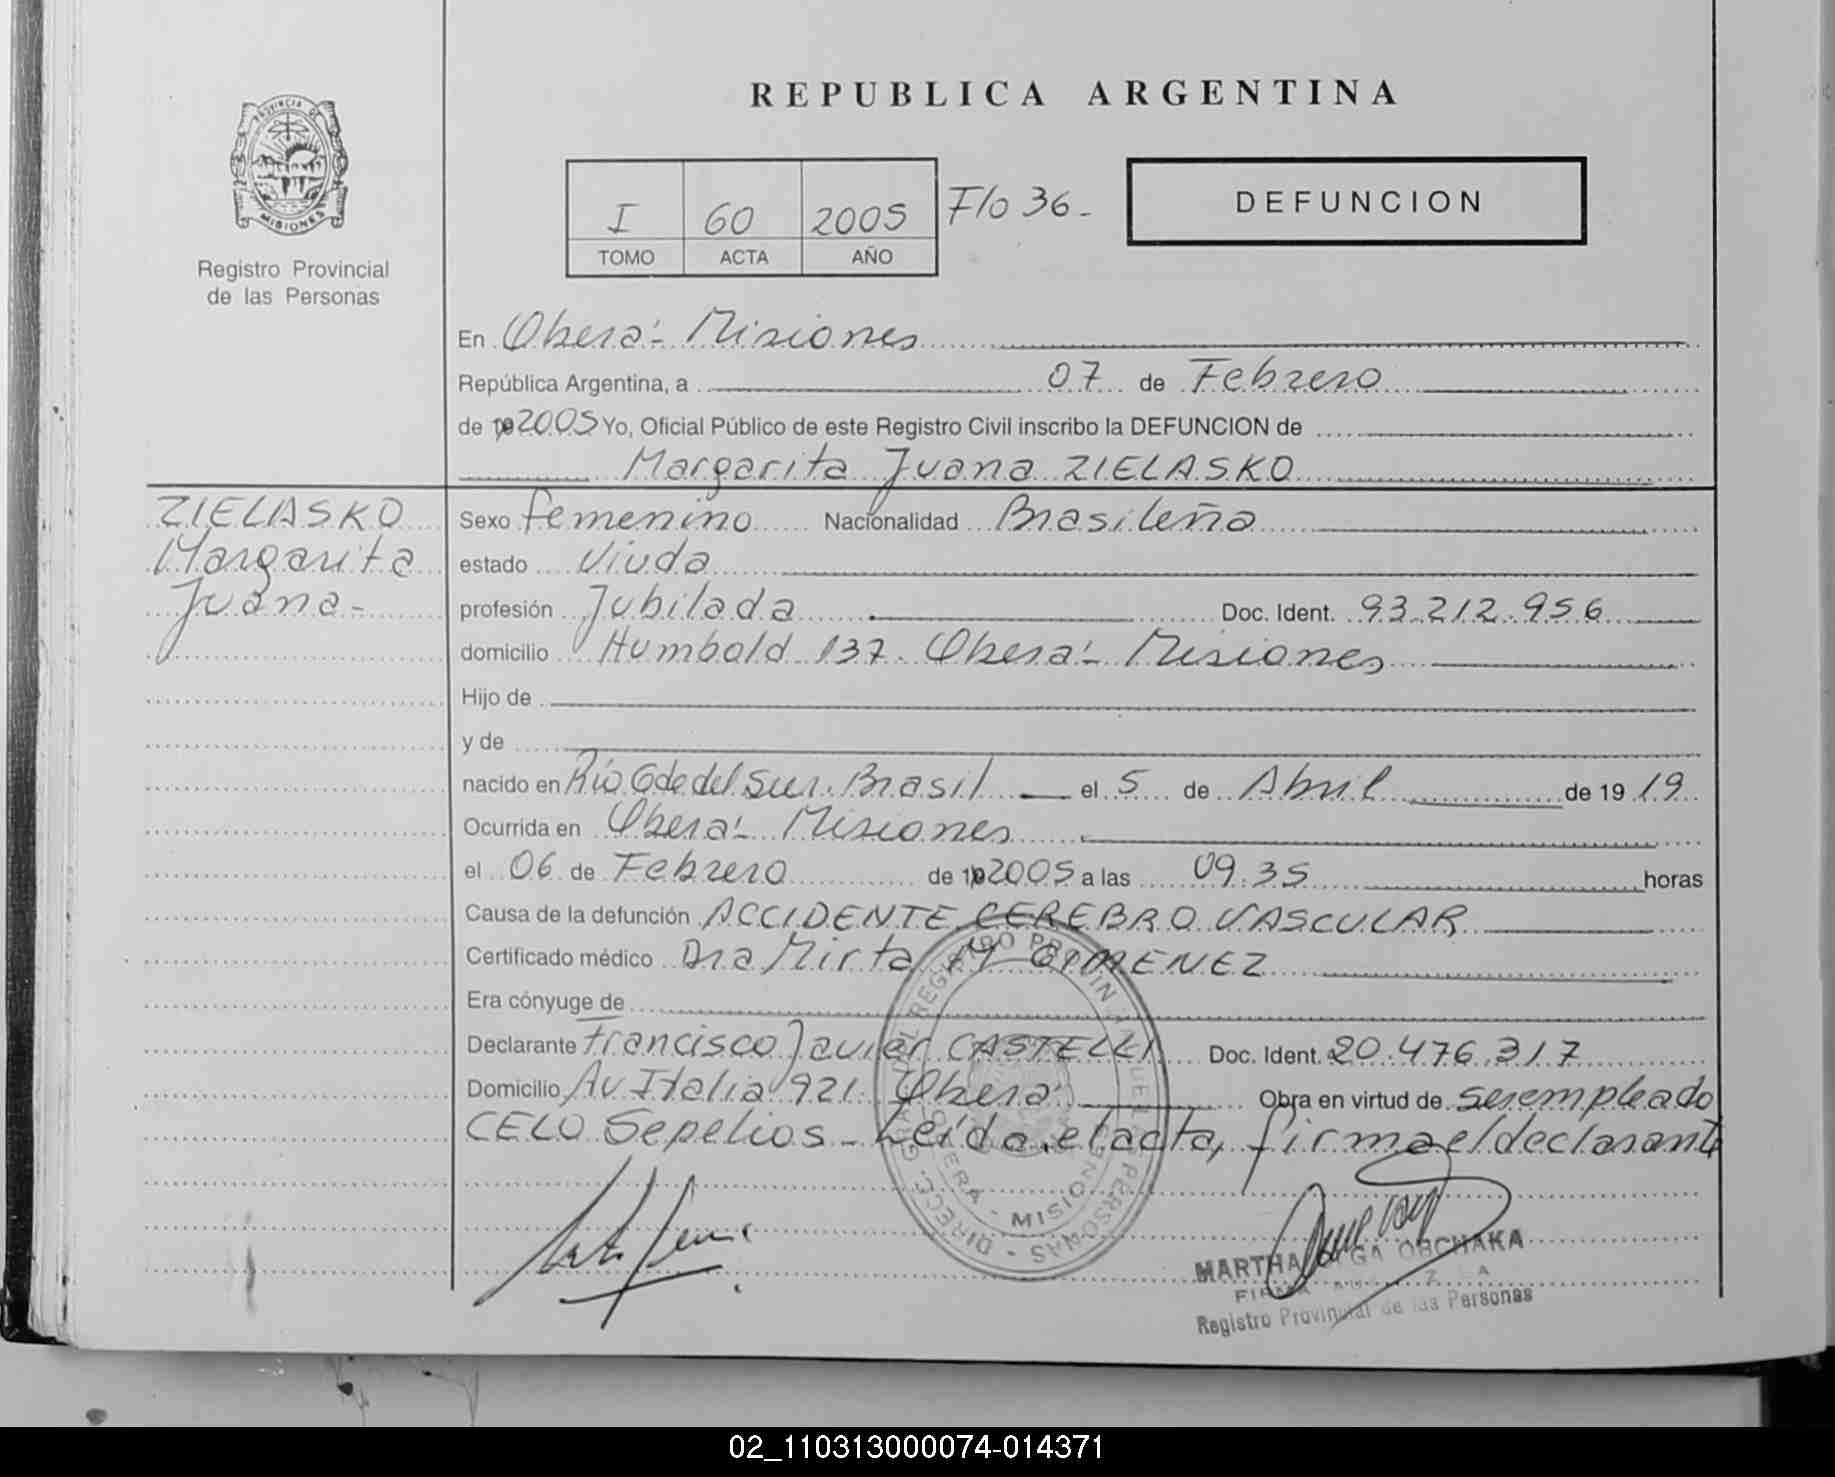 REPUBLICA ARGENTINA
PROVINCIA DE
MISIONES
Registro Provincial
de las Personas
I 60 2005 F/o 36-
TOMO ACTA AÑO
DEFUNCION
En Oberá - Misiones
República Argentina, a 07 de Febrero
de 2005 Yo, Oficial Público de este Registro Civil inscribo la DEFUNCION de
Margarita Juana ZIELASKO
ZIELASKO
Margarita
Juana-
Sexo femenino Nacionalidad Brasileña
estado Viuda
profesión Jubilada Doc. Ident. 93.212.956
domicilio Humbold 137. Oberá - Misiones
Hijo de
y de
nacido en Río Gde del Sur. Brasil el 5 de Abril de 19 19
Ocurrida en Oberá - Misiones
el 06 de Febrero de 2005 a las 09.35 horas
Causa de la defunción ACCIDENTE CEREBRO VASCULAR
Certificado médico Dra Mirta M GIMENEZ
Era cónyuge de
Declarante Francisco Javier CASTELLI Doc. Ident. 20.476.317
Domicilio Av. Italia 921. Oberá Obra en virtud de ser empleado
CELO Sepelios - Leída el acta, firma el declarante
MARTHA OLGA OBCHAKA
Registro Provincial de las Personas
02_110313000074-014371